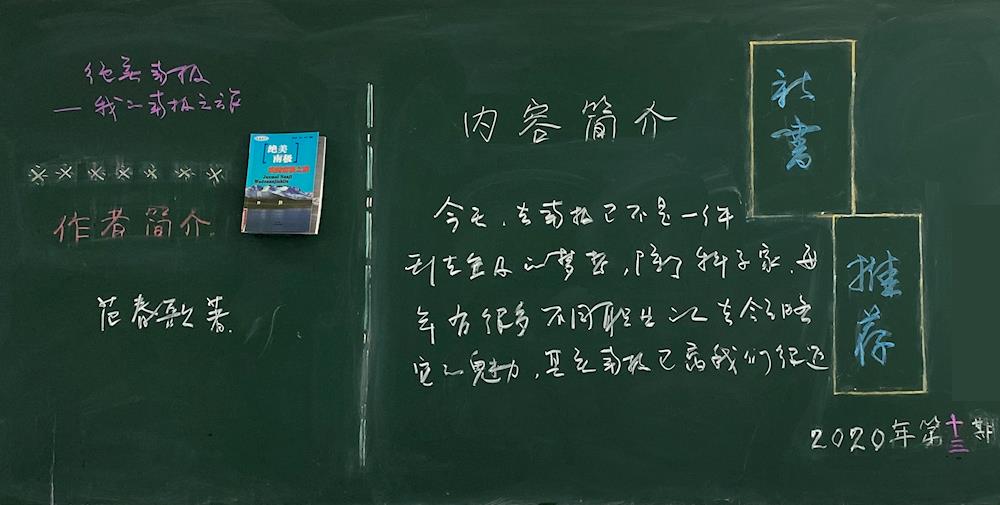 绝美南极
—我的南极之旅
※ ※ ※ ※ ※ ※ ※
作者简介
范春歌著.
绝美
南极
内容简介
今天，去南极已不是一件
及的梦想，除了科学家，每
年有很多不同职业的人去领略
它的魅力，其实南极已离我们很近
新书
推荐
2020年第十三期